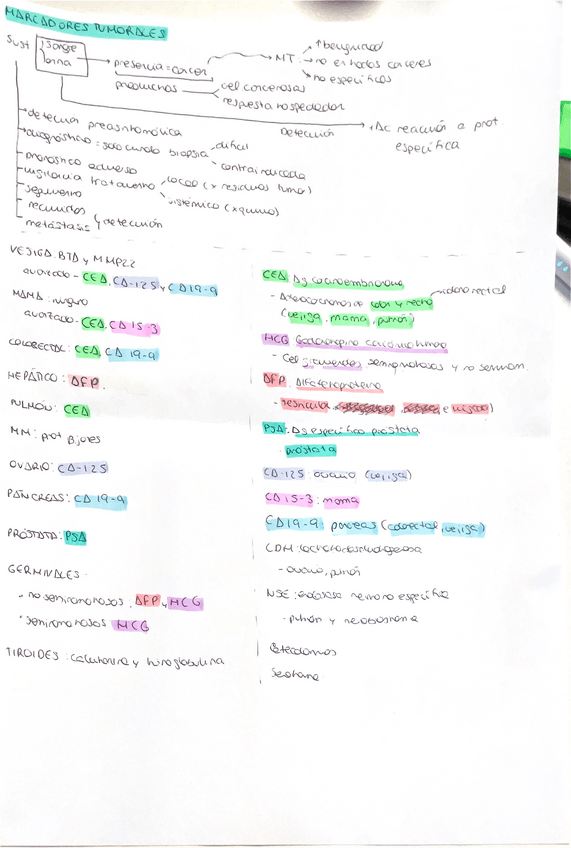 MARCADORES TUMORALES
Sust
Sangre
orina
presencia = cancer
MT
↑ benignidad
no en todos canceres
no específicos
producidas
cel cancerosas
respuesta hospedador
Detección
Ac reacción a prot.
específica
detección preasintomática
diagnóstico = solo cuando biopsia
difícil
contraindicada
pronostico adverso
vigilancia tratamiento
local (x residuos tumor)
sistémico (x quimio)
seguimiento
recurrentes
metástasis y detección
VESIGA. BTA y MMP22
avanzado - CEA, CA-125 y CA19-9
MAMA: ninguno
avanzado - CEA, CA 15-3
COLORECTAL: CEA, CA 19-9
HEPÁTICO: AFP.
PULMÓN: CEA
MM: prot B.jones
OVARIO: CA-125
PÁNCREAS: CA 19-9
PRÓSTATA: PSA
GERMINALES.
- no seminomatosos. AFP y HCG
seminomatosos HCG
TIROIDES: calcitonina y tiroglobulina
CEA Ag carcinoembrionario
- Adenocarcinomas de colon y recto
colorectal
(vejiga, mama, pulmón)
HCG Gonadotropina coriónica humana
- Cel germinales seminomatosas y no seminom.
AFP. Alfafetoproteina
- testicular
e hígado
PSA: Ag específico próstata
próstata
CA-125: ovario (vejiga)
CA 15-3: mama
CA 19-9: páncreas (colorectal, vejiga)
- ovario, pulmón
NSE: enolasa
- pulmón y neoblastoma